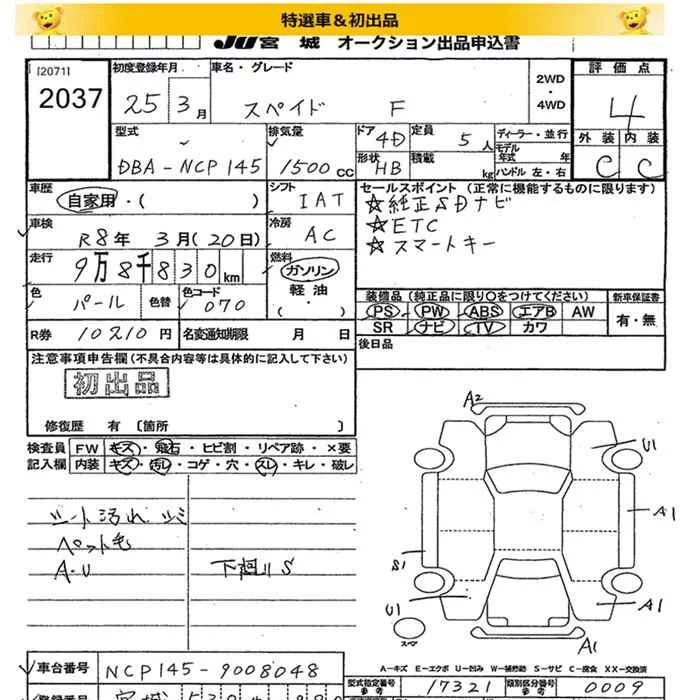 特選車&初出品
JU宮城 オークション出品申込書
[2071]
2037
初度登録年月
25年3月
車名・グレード
スペイド F
2WD
・
4WD
評価点
4
外装 内装
C C
型式
DBA-NCP145
排気量
1500CC
ドア
4D
定員
5人
形状
HB
積載
kg
ディーラー・並行
モデル年式 年
ハンドル 左・右
車歴
自家用・( )
シフト
IAT
セールスポイント (正常に機能するものに限ります)
☆純正SDナビ
☆ETC
☆スマートキー
車検
R8年 3月(20日)
冷房
AC
走行
9万8千830km
燃料
ガソリン
軽油
・( )
色
パール
色替
色コード
070
装備品 (純正品に限り○をつけてください)
PS PW ABS エアB AW
SR ナビ TV カワ
新車保証書
有・無
R券 10210円
名変通知期限 月 日
後日品
注意事項申告欄 (不具合内容等は具体的に記入して下さい)
初出品
修復歴 有 〔箇所 〕
検査員 FW キズ・飛石・ヒビ割・リペア跡・×要
記入欄 内装 キズ・汚れ・コゲ・穴・スレ・キレ・破レ
シート汚れ シミ
ペット毛
A・U
下廻りS
A2
U1
A1
S1
U1
A1
スペア
A1
A-キズ E-エクボ U-凹み W-補修跡 S-サビ C-腐食 XX-交換済
車台番号 NCP145-9008048
型式指定番号 参考 17321
類別区分番号 参考 0009
登録番号 宮城